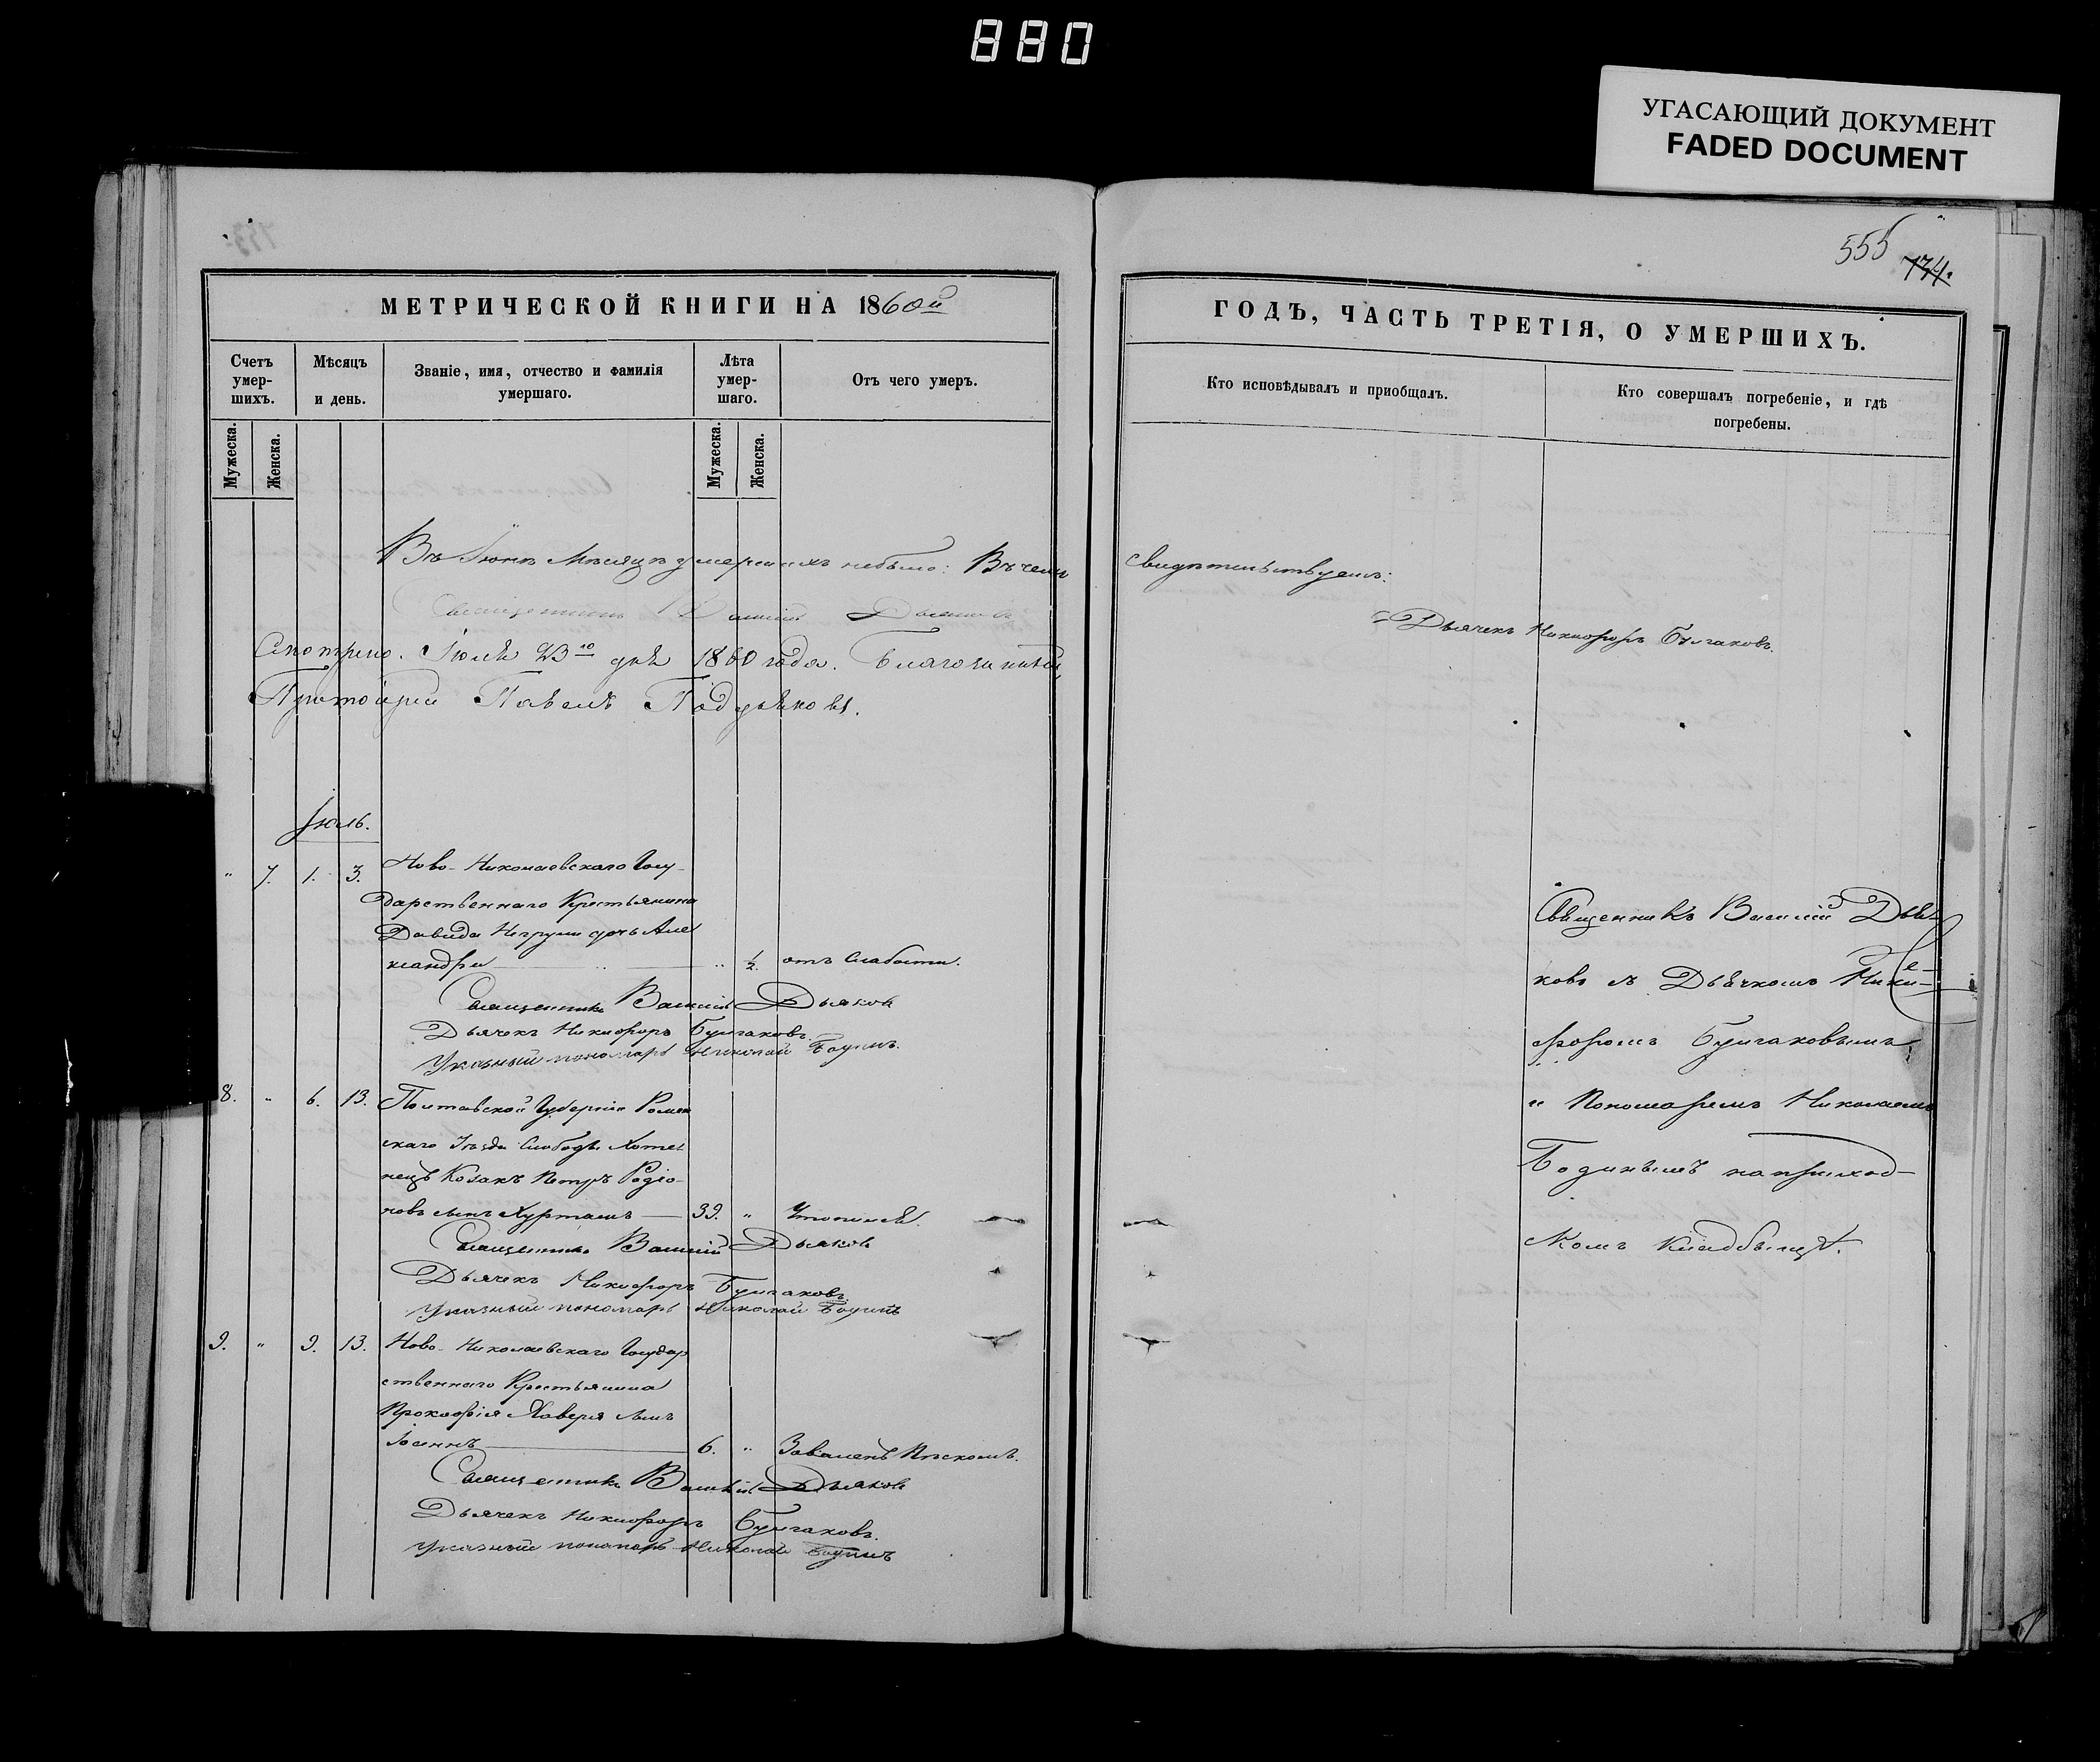 880
УГАСАЮЩИЙ ДОКУМЕНТ
FADED DOCUMENT
555
734.
МЕТРИЧЕСКОЙ КНИГИ НА 1860й
Счетъ умер-шихъ.
Мѣсяцъ и день.
Званіе, имя, отчество и фамилія умершаго.
Лѣта умер-шаго.
Отъ чего умеръ.
Мужеска.
Женска.
Мужеска.
Женска.
Въ Іюнѣ Мѣсяцѣ умершихъ небыло: Въ чемъ
Священникъ Василій Дьяковъ
Смотрено. Іюля 23го дня 1860 года. Благочинный
Протоіерей Павелъ
Іюль.
" 7. 1. 3. Ново-Николаевскаго Госу-
дарственнаго Крестьянина
Давида дочь Але
ксандра " 1/2. отъ Слабости.
Священникъ Василій Дьяковъ
Дьячекъ Никифоръ Булгаковъ.
Указный пономарь Николай
8. " 6. 13. Полтавской Губерніи Ромен
скаго Уѣзда Слободы
Козакъ Петръ Родіо-
новъ сынъ 39. "
Священникъ Василій Дьяковъ
Дьячекъ Никифоръ Булгаковъ.
Указный пономарь Николай
9. " 9. 13. Ново-Николаевскаго Государ
ственнаго Крестьянина
Прокофія сынъ
6. " Заваленъ Пескомъ.
Священникъ Василій Дьяковъ
Дьячекъ Никифоръ Булгаковъ.
Указный пономарь Николай
ГОДЪ, ЧАСТЬ ТРЕТІЯ, О УМЕРШИХЪ.
Кто исповѣдывалъ и пріобщалъ.
Кто совершалъ погребеніе, и гдѣ погребены.
свидѣтельствуемъ:
Дьячекъ Никифоръ Булгаковъ.
Священникъ Василій Дья-
ковъ съ Дьячкомъ Ники-
форомъ Булгаковымъ
и Пономаремъ Николаемъ
на приход-
скомъ кладбищѣ.